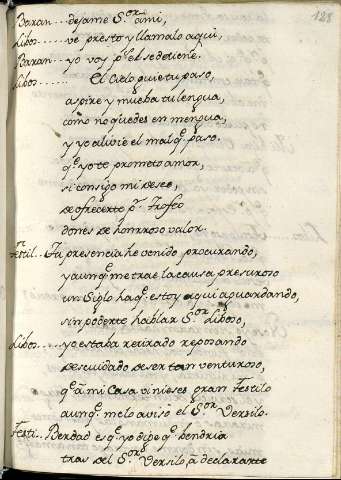 128
Baxan... dejame S.or á mi,
Libos... ve presto y llamalo aqui,
Baxan... yo voy p.r el se detiene.
Libos... El Cielo guie tu paso,
aspire y mueba tu lengua,
como no quedes en mengua,
y yo alivie el mal q.e paso.
q.e yo te prometo amor,
si consigo mi deseo,
de ofrecerte p.r trofeo
dones de honrroso valor.
Festil.. Tu presencia he venido procurando,
y aunq.e me trae la causa presuroso
un siglo ha q.e estoy aqui aguardando,
sin poderte hablar S.or Liboso,
Libos... yo estaba retirado reposando
descuidado de ser tan venturoso,
q.e á mi Casa vinieses gran Festilo
aunq.e me lo avisó el S.or Versilo.
Festi.. Berdad es q.e yo dije q.e bendria
tras del S.or Versilo, á declararte